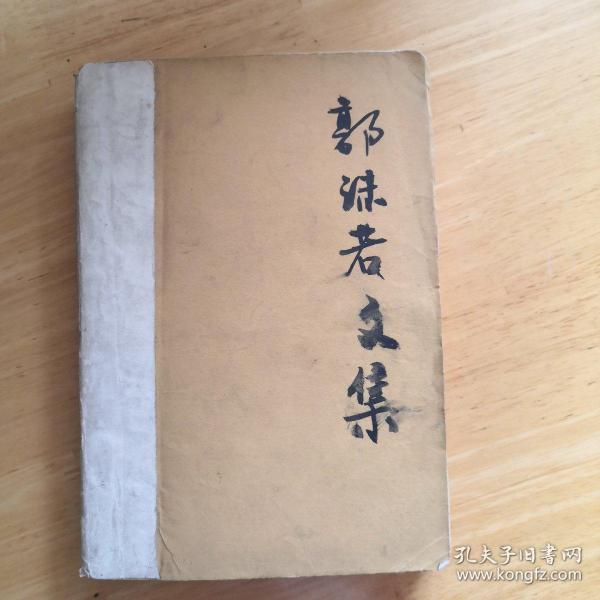 郭沫若文集
孔夫子旧書网
www.kongfz.com